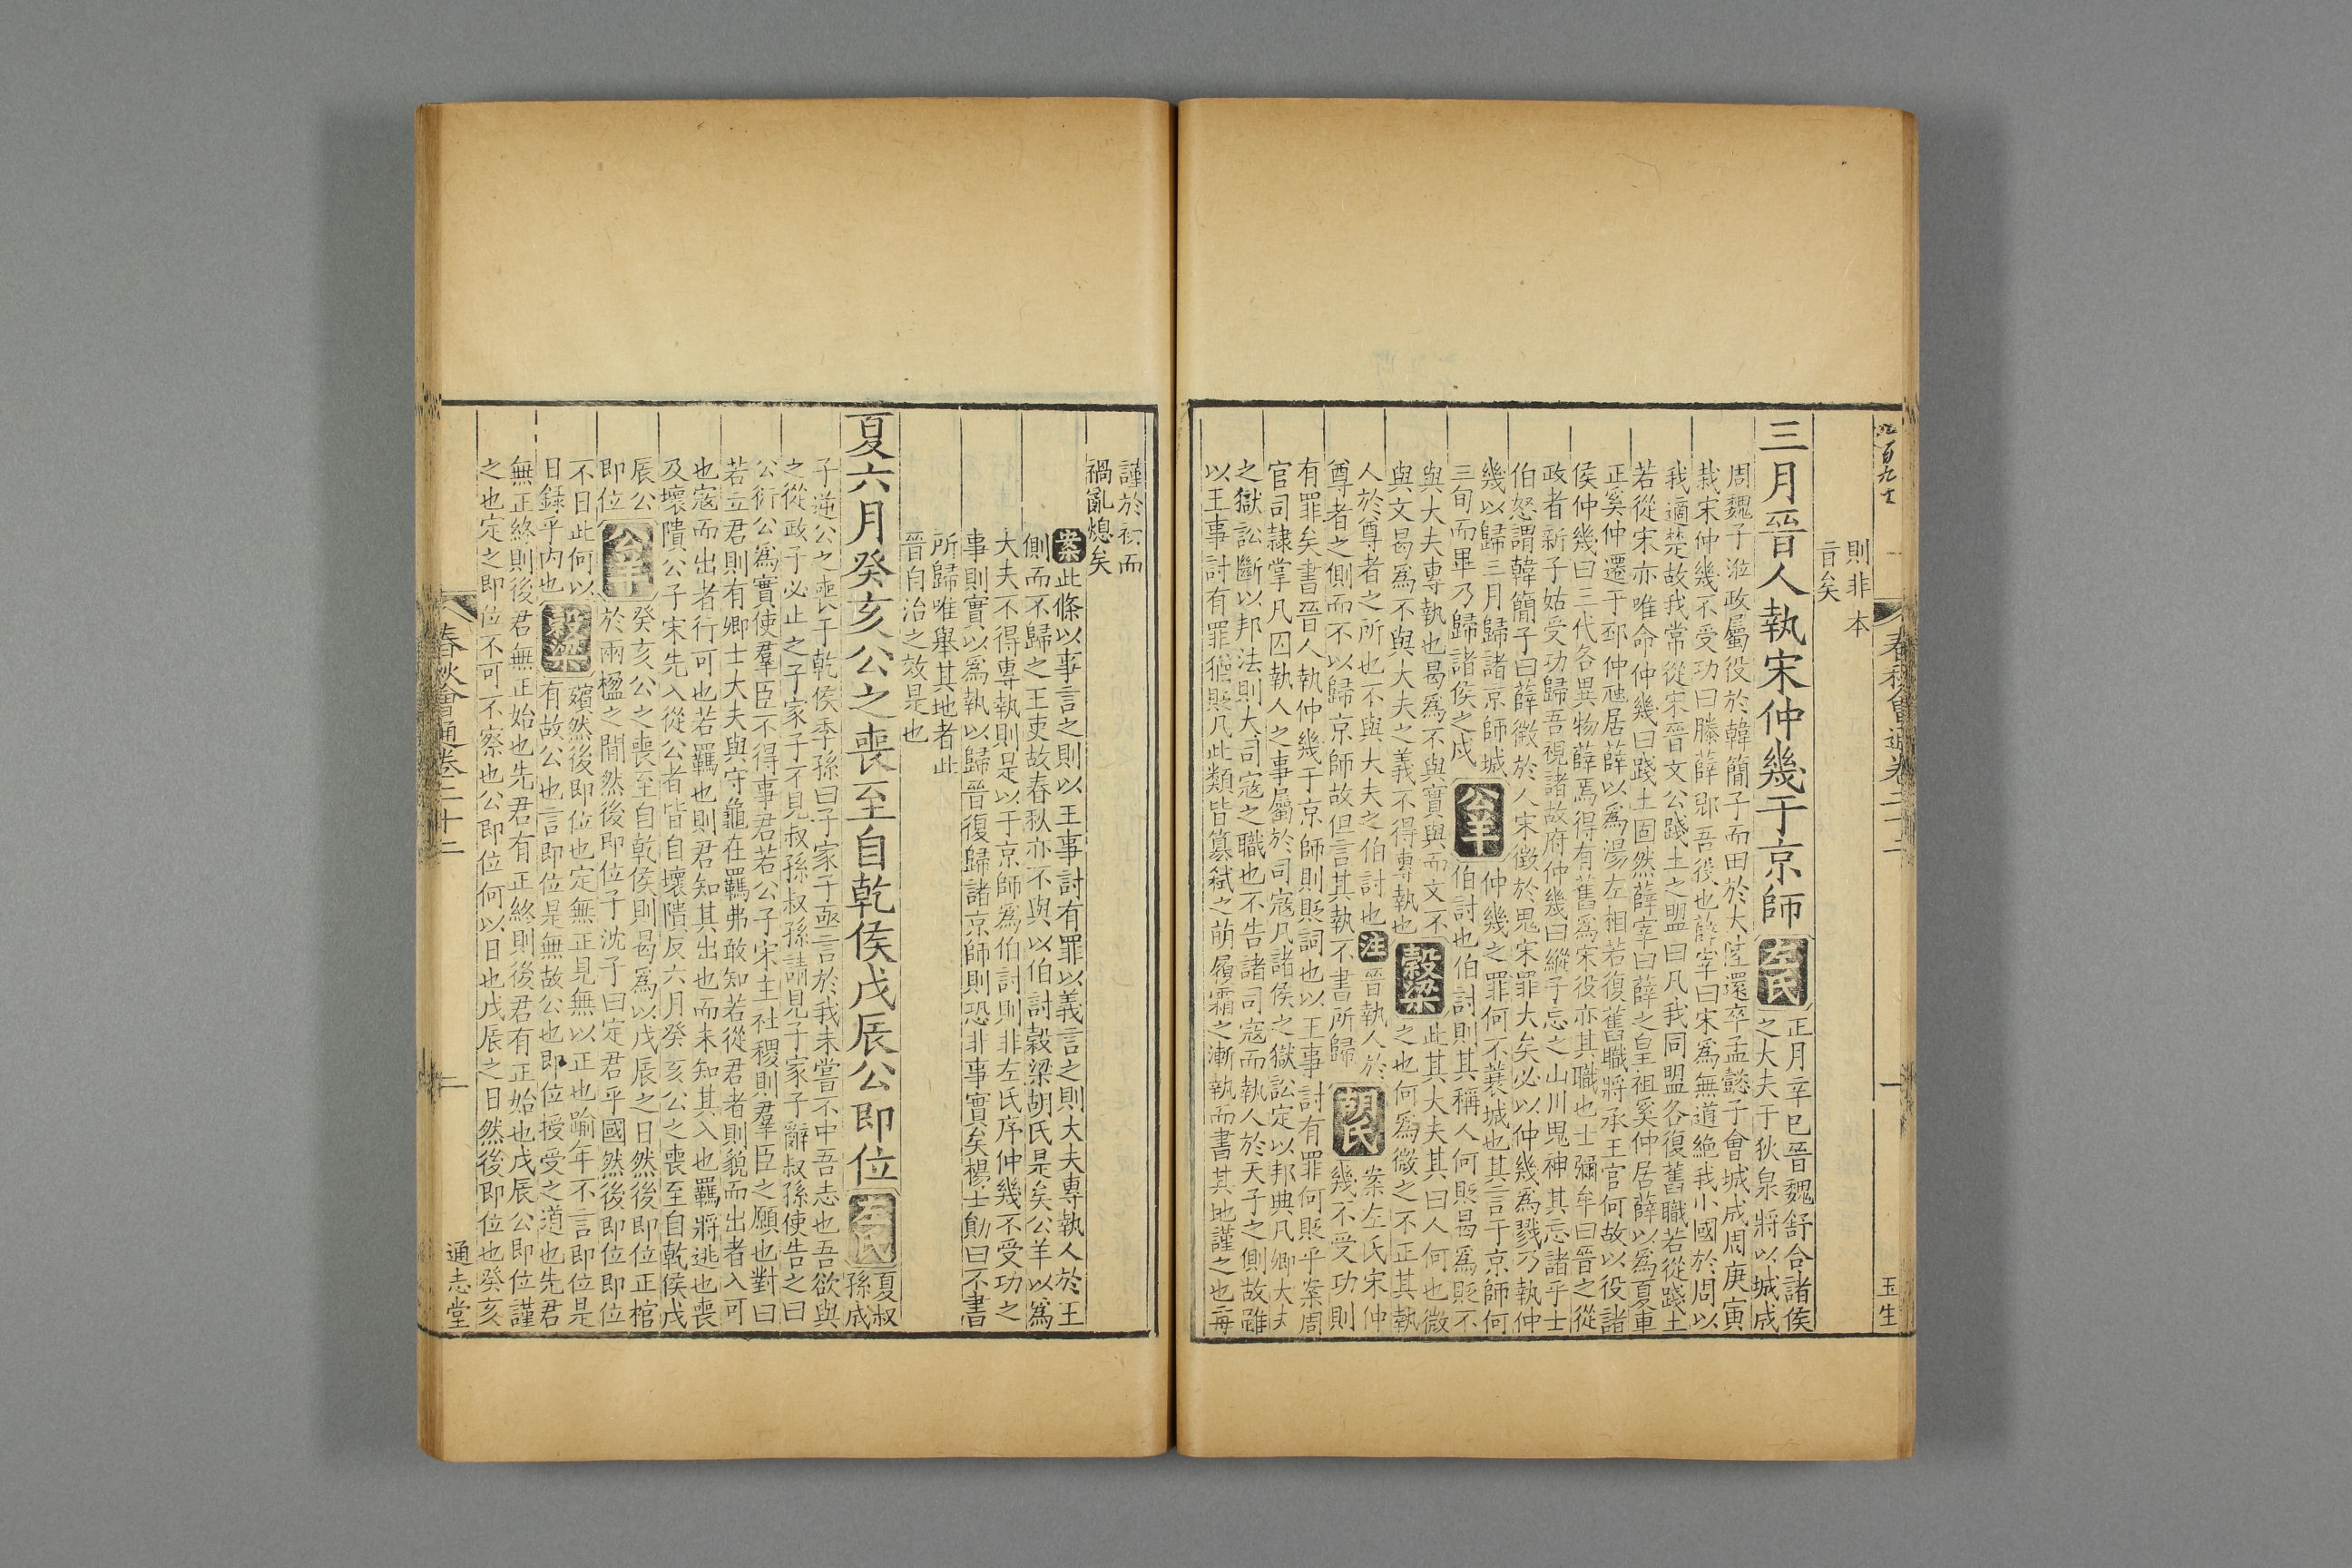 春秋會通卷二十二
一
玉生
則非本
旨矣
三月晉人執宋仲幾于京師左氏正月辛巳晉魏舒合諸侯
之大夫于狄泉將以城成
周魏子涖政屬役於韓簡子而田於大陸還卒孟懿子會城成周庚寅
栽宋仲幾不受功曰滕薛郳吾役也薛宰曰宋爲無道絶我小國於周以
我適楚故我常從宋晉文公踐土之盟曰凡我同盟各復舊職若從踐土
若從宋亦唯命仲幾曰踐土固然薛宰曰薛之皇祖奚仲居薛以爲夏車
正奚仲遷于邳仲虺居薛以爲湯左相若復舊職將承王官何故以役諸
侯仲幾曰三代各異物薛焉得有舊爲宋役亦其職也士彌牟曰晉之從
政者新子姑受功歸吾視諸故府仲幾曰縱子忘之山川鬼神其忘諸乎士
伯怒謂韓簡子曰薛徵於人宋徵於鬼宋罪大矣必以仲幾爲戮乃執仲
幾以歸三月歸諸京師城
三旬而畢乃歸諸侯之戍公羊仲幾之罪何不蓑城也其言于京師何
伯討也伯討則其稱人何貶曷爲貶不
與大夫專執也曷爲不與實與而文不
與文曷爲不與大夫之義不得專執也穀梁此其大夫其曰人何也微
之也何爲微之不正其執
人於尊者之所也不與大夫之伯討也注晉執人於
尊者之側而不以歸京師故但言其執不書所歸胡氏案左氏宋仲
幾不受功則
有罪矣書晉人執仲幾于京師則貶詞也以王事討有罪何貶乎案周
官司隷掌凡囚執人之事屬於司寇凡諸侯之獄訟定以邦典凡卿大夫
之獄訟斷以邦法則大司寇之職也不告諸司寇而執人於天子之側故雖
以王事討有罪猶貶凡此類皆篡弑之萌履霜之漸執而書其地謹之也每
謹於初而
禍亂熄矣
案此條以事言之則以王事討有罪以義言之則大夫專執人於王
側而不歸之王吏故春秋亦不與以伯討穀梁胡氏是矣公羊以爲
大夫不得專執則是以于京師爲伯討則非左氏序仲幾不受功之
事則實以爲執以歸晉復歸諸京師則恐非事實矣楊士勛曰不書
所歸唯舉其地者此
晉自治之效是也
夏六月癸亥公之喪至自乾侯戊辰公即位左氏夏叔
孫成
子逆公之喪于乾侯季孫曰子家子亟言於我未嘗不中吾志也吾欲與
之從政子必止之子家子不見叔孫叔孫請見子家子辭叔孫使告之曰
公衍公爲實使羣臣不得事君若公子宋主社稷則羣臣之願也對曰
若立君則有卿士大夫與守龜在羈弗敢知若從君者則貌而出者入可
也寇而出者行可也若羈也則君知其出也而未知其入也羈將逃也喪
及壞隤公子宋先入從公者皆自壞隤反六月癸亥公之喪至自乾侯戊
辰公
即位公羊癸亥公之喪至自乾侯則曷爲以戊辰之日然後即位正棺
於兩楹之間然後即位子沈子曰定君乎國然後即位即位
不日此何以
日錄乎內也穀梁殯然後即位也定無正見無以正也踰年不言即位是
有故公也言即位是無故公也即位授受之道也先君
無正終則後君無正始也先君有正終則後君有正始也戊辰公即位謹
之也定之即位不可不察也公即位何以日也戊辰之日然後即位也癸亥
春秋會通卷二十二
一
通志堂